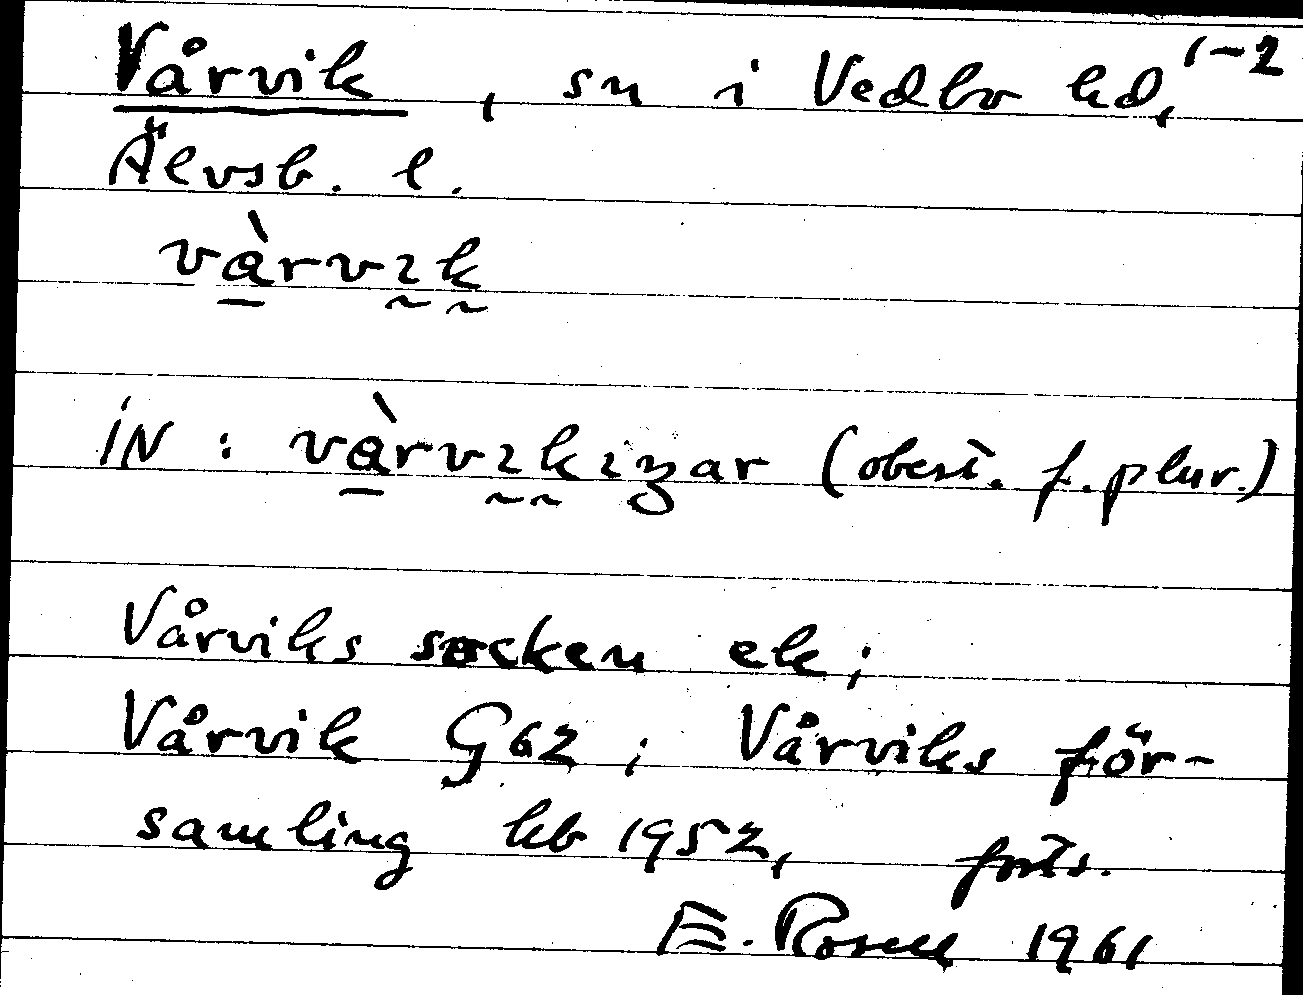 Vårvik, sn i Vedbo hd, 1-2
Älvsb. l.
vàrvɩk
iN : vàrvɩkɩŋar (obest. f. plur.)
Vårviks socken ek;
Vårvik G62; Vårviks för-
samling kb 1952, forts.
E. Rosell 1961